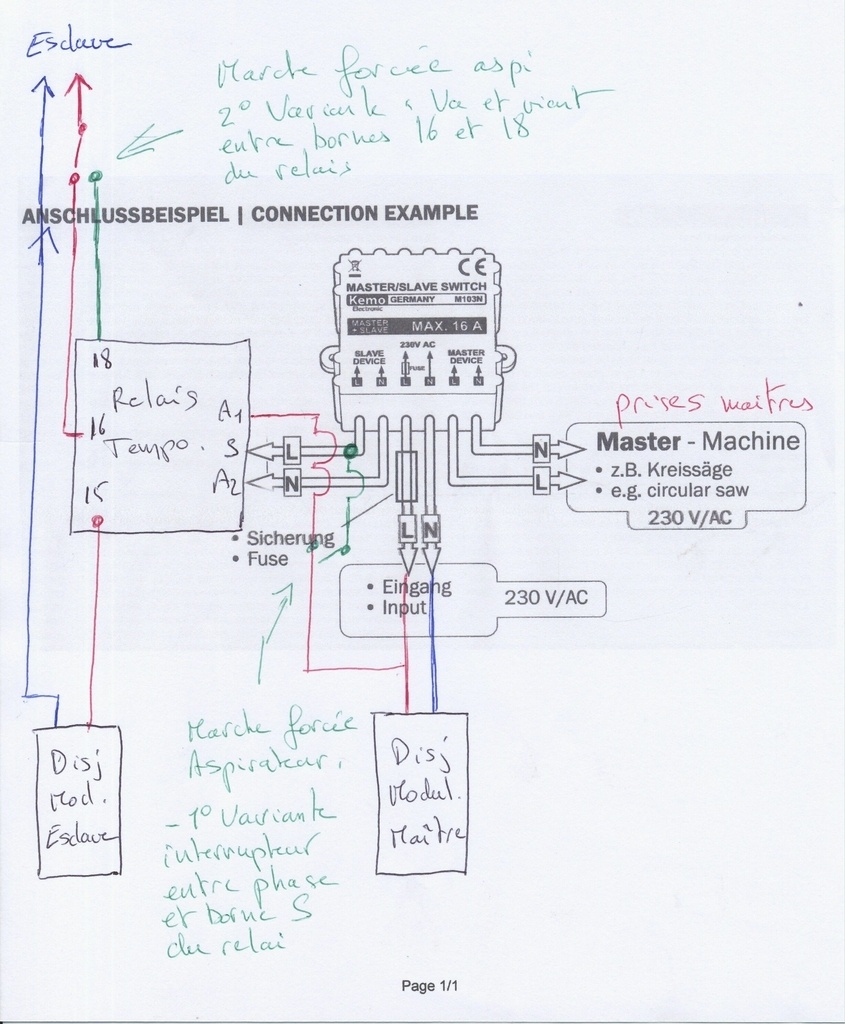 Esclave
Marche forcée aspi
2° Variante : Va et vient
entre bornes 16 et 18
du relais
ANSCHLUSSBEISPIEL | CONNECTION EXAMPLE
CE
MASTER/SLAVE SWITCH
Kemo GERMANY M103N
Electronic
MASTER + SLAVE MAX. 16 A
230V AC
SLAVE DEVICE
FUSE
MASTER DEVICE
L N L N L N
18
Relais
Tempo.
16
15
A1
S
A2
L
N
prises maitres
N
L
Master - Machine
• z.B. Kreissäge
• e.g. circular saw
230 V/AC
• Sicherung
• Fuse
L N
• Eingang
• Input
230 V/AC
Marche forcée
Aspirateur.
- 1° Variante
interrupteur
entre phase
et borne S
du relai
Disj
Mod.
Esclave
Disj
Modul.
Maître
Page 1/1